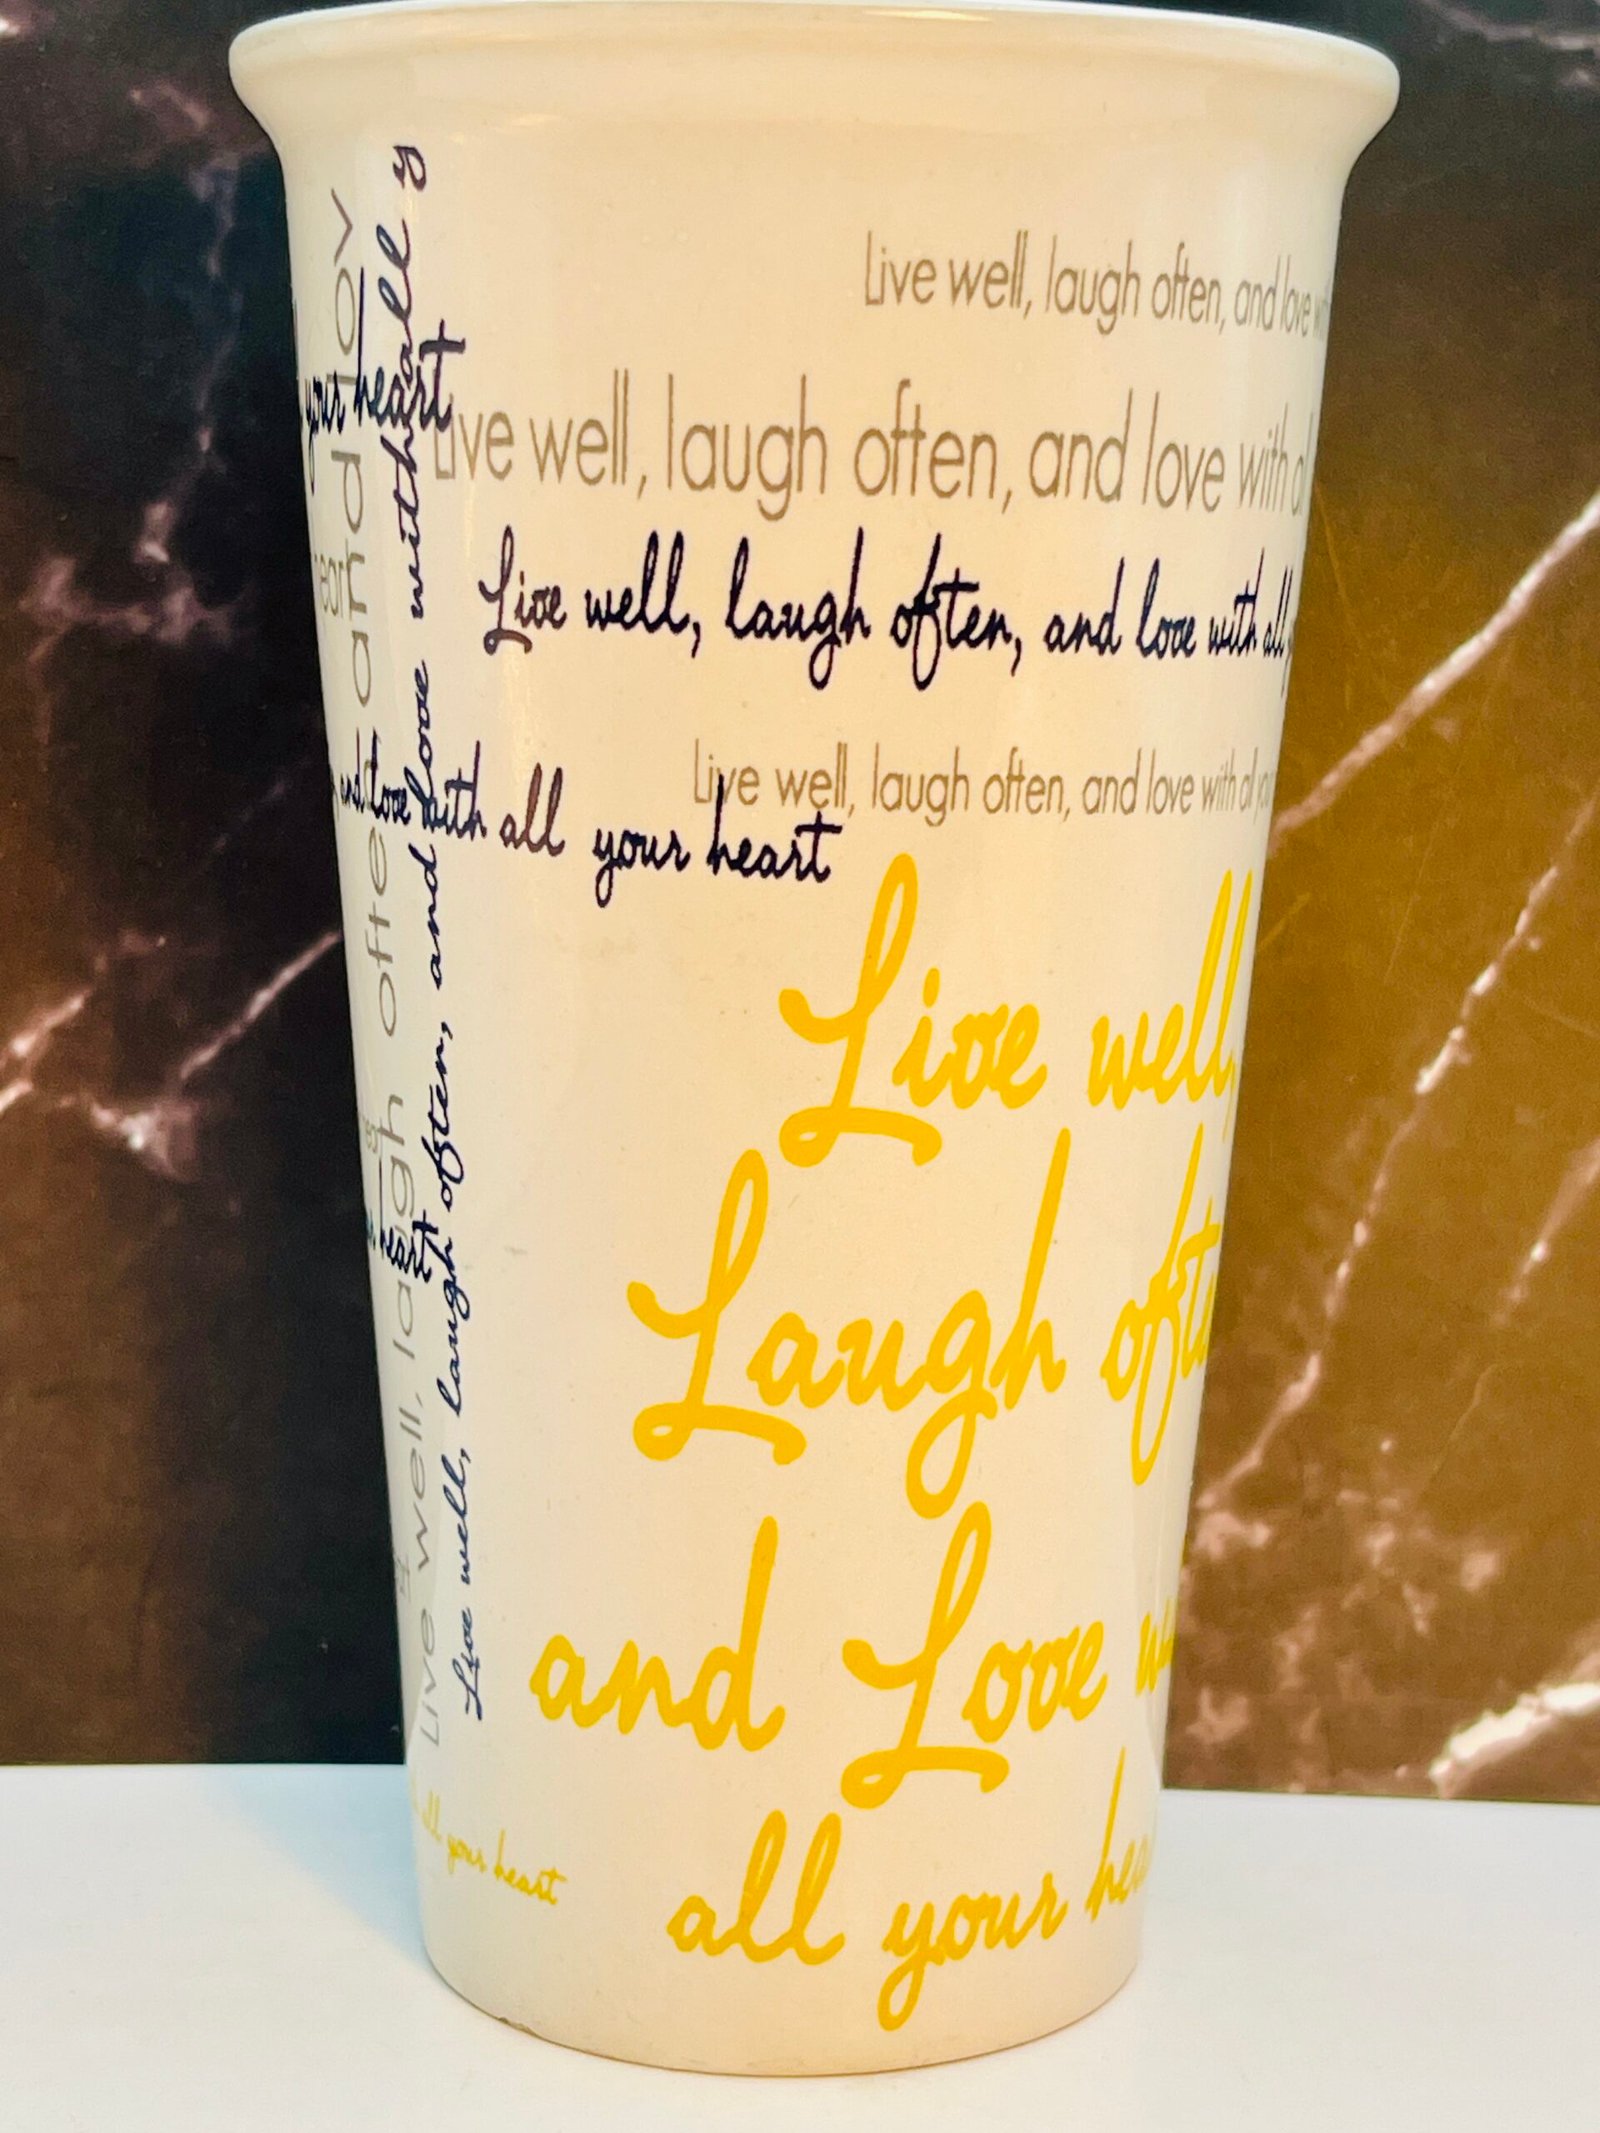 Live well, laugh often, and love
your heart
Live well, laugh often, and love with
Live well, laugh often, and love with all
Live well, laugh often, and love with all
and love with all your heart
Live well,
Laugh
and Love
all your
all your heart
Live well, laugh often, and love with all
Live well, laugh often, and lov
heart